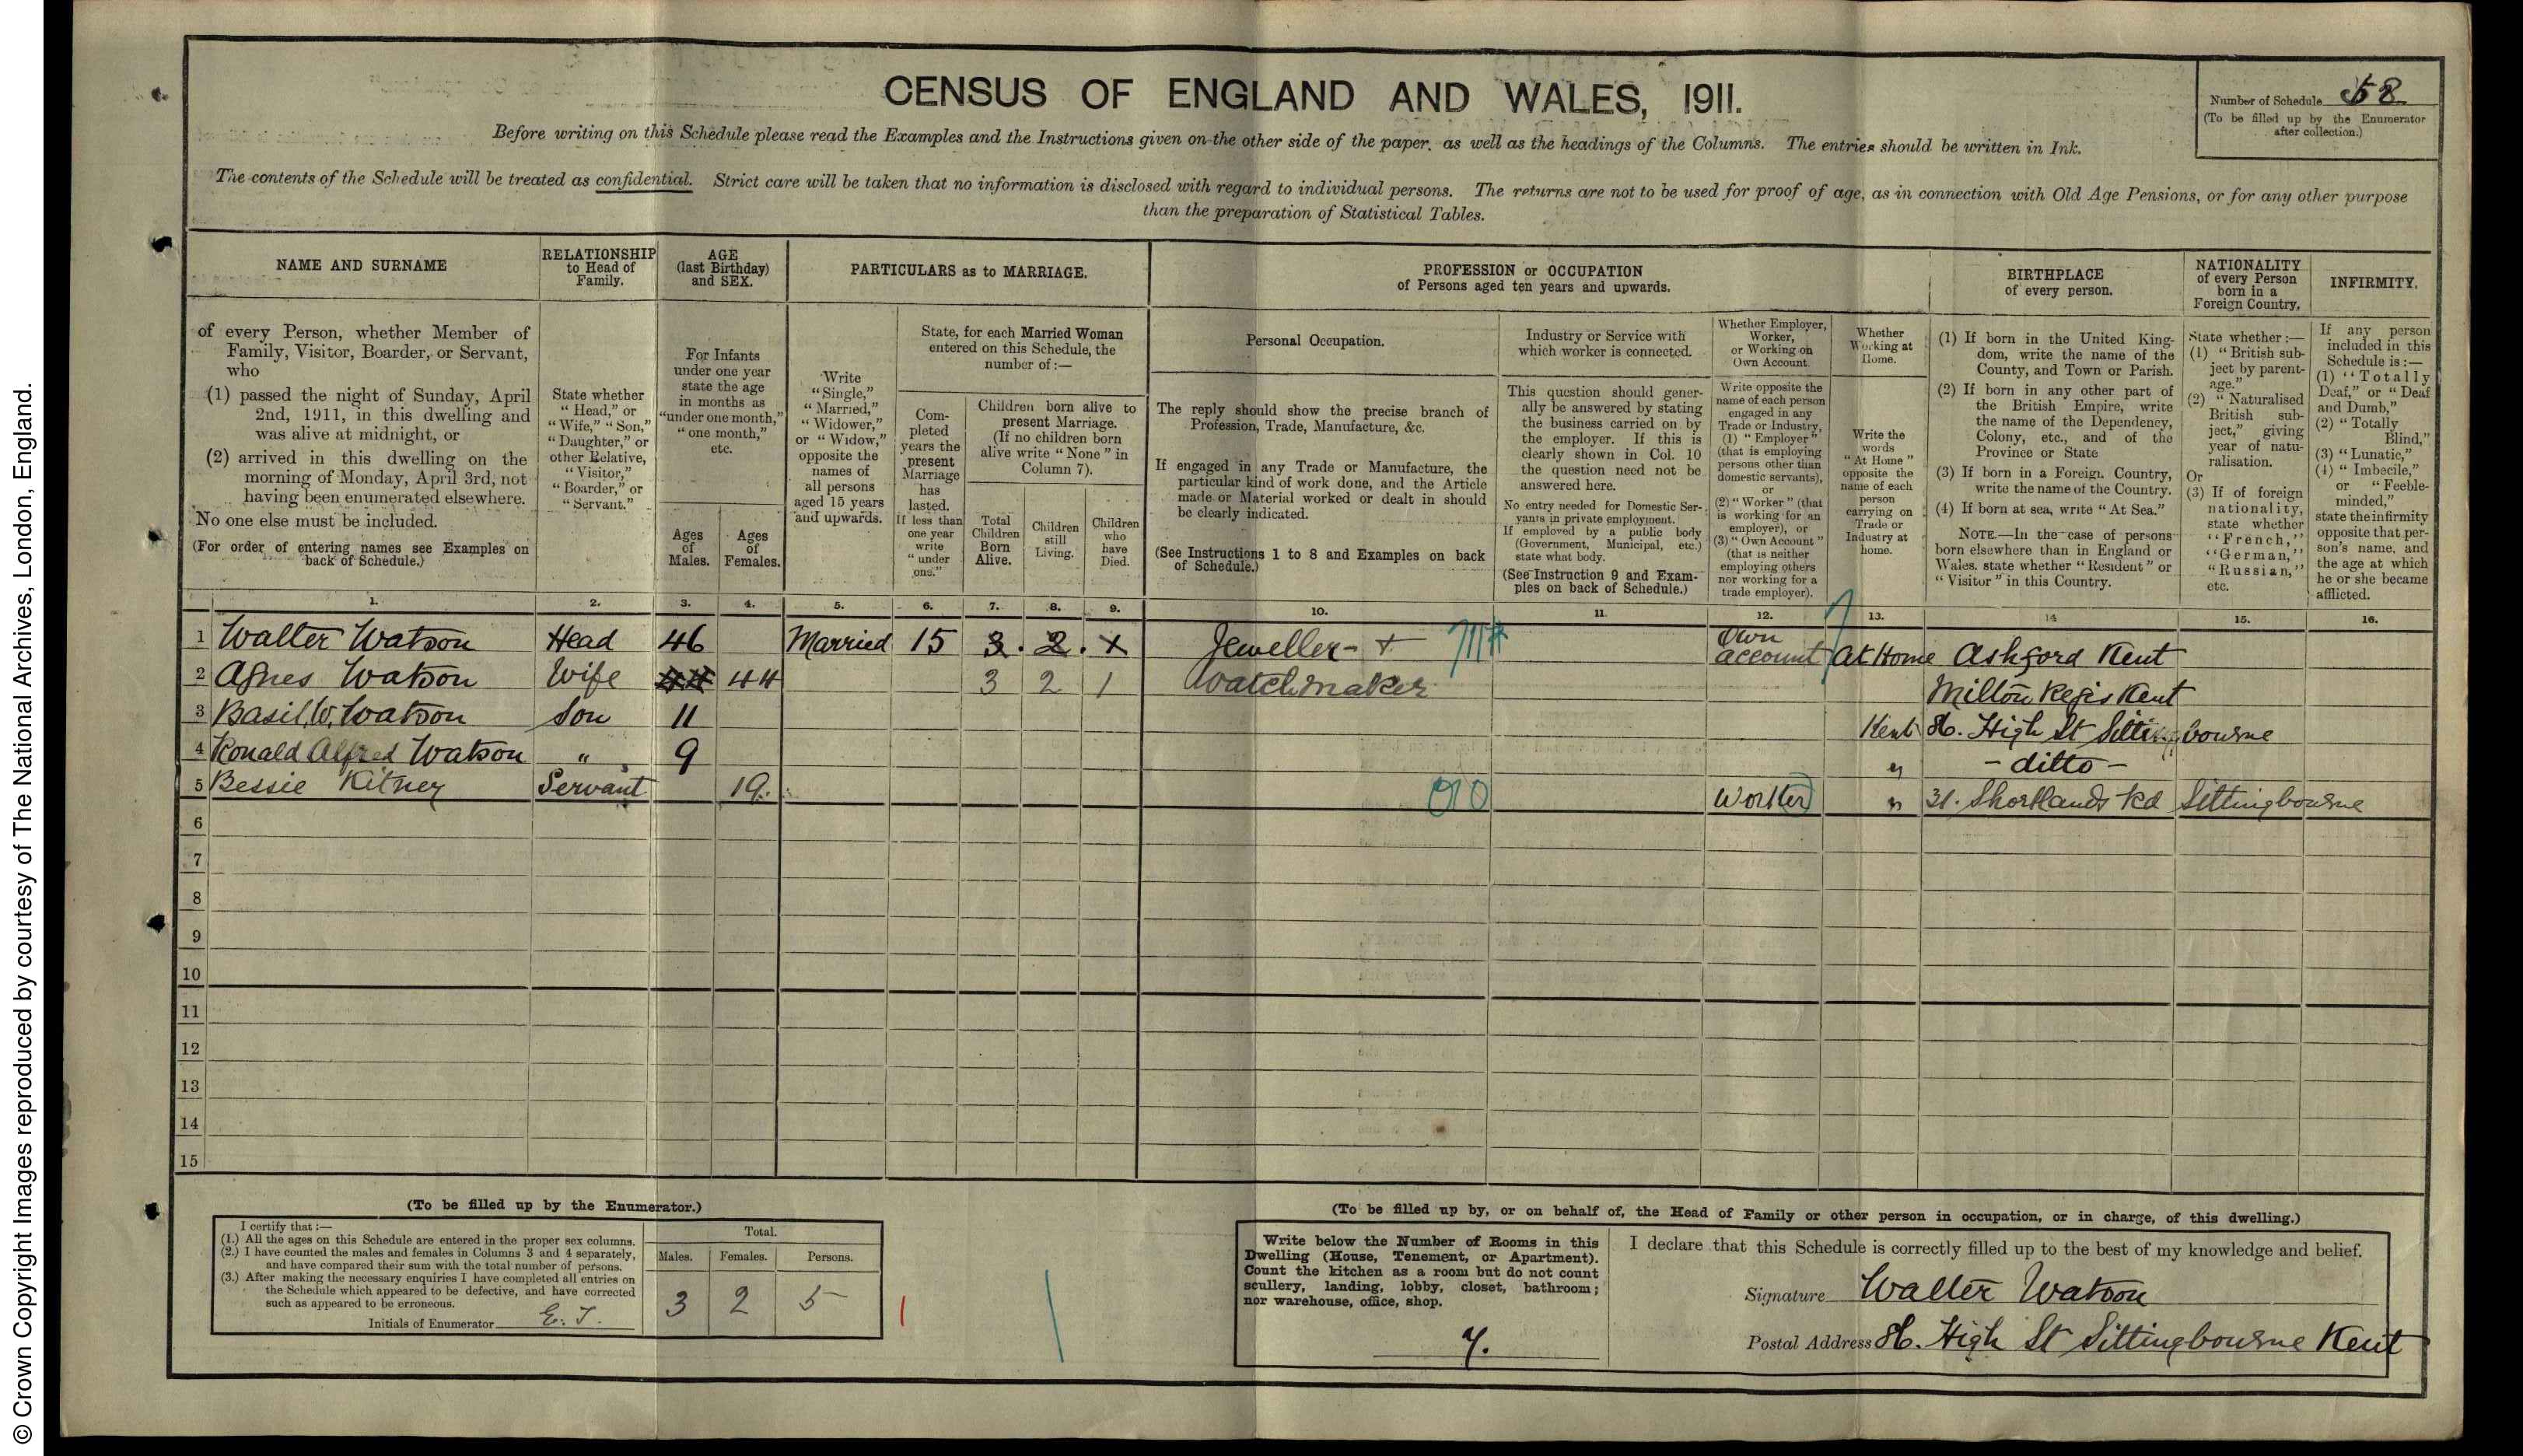 © Crown Copyright Images reproduced by courtesy of The National Archives, London, England.
CENSUS OF ENGLAND AND WALES, 1911.
Number of Schedule 58
(To be filled up by the Enumerator
after collection.)
Before writing on this Schedule please read the Examples and the Instructions given on the other side of the paper, as well as the headings of the Columns. The entries should be written in Ink.
The contents of the Schedule will be treated as confidential. Strict care will be taken that no information is disclosed with regard to individual persons. The returns are not to be used for proof of age, as in connection with Old Age Pensions, or for any other purpose
than the preparation of Statistical Tables.
NAME AND SURNAME
of every Person, whether Member of
Family, Visitor, Boarder, or Servant,
who
(1) passed the night of Sunday, April
2nd, 1911, in this dwelling and
was alive at midnight, or
(2) arrived in this dwelling on the
morning of Monday, April 3rd, not
having been enumerated elsewhere.
No one else must be included.
(For order of entering names see Examples on
back of Schedule.)
RELATIONSHIP
to Head of
Family.
State whether
"Head," or
"Wife," "Son,"
"Daughter," or
other Relative,
"Visitor,"
"Boarder," or
"Servant."
AGE
(last Birthday)
and SEX.
For Infants
under one year
state the age
in months as
"under one month,"
"one month,"
etc.
Ages
of
Males.
Ages
of
Females.
PARTICULARS as to MARRIAGE.
Write
"Single,"
"Married,"
"Widower,"
or "Widow,"
opposite the
names of
all persons
aged 15 years
and upwards.
State, for each Married Woman
entered on this Schedule, the
number of:—
Com-
pleted
years the
present
Marriage
has
lasted.
If less than
one year
write
"under
one."
Children born alive to
present Marriage.
(If no children born
alive write "None" in
Column 7).
Total
Children
Born
Alive.
Children
still
Living.
Children
who
have
Died.
PROFESSION or OCCUPATION
of Persons aged ten years and upwards.
Personal Occupation.
The reply should show the precise branch of
Profession, Trade, Manufacture, &c.
If engaged in any Trade or Manufacture, the
particular kind of work done, and the Article
made or Material worked or dealt in should
be clearly indicated.
(See Instructions 1 to 8 and Examples on back
of Schedule.)
Industry or Service with
which worker is connected.
This question should gener-
ally be answered by stating
the business carried on by
the employer. If this is
clearly shown in Col. 10
the question need not be
answered here.
No entry needed for Domestic Ser-
vants in private employment.
If employed by a public body
(Government, Municipal, etc.)
state what body.
(See Instruction 9 and Exam-
ples on back of Schedule.)
Whether Employer,
Worker,
or Working on
Own Account.
Write opposite the
name of each person
engaged in any
Trade or Industry,
(1) "Employer"
(that is employing
persons other than
domestic servants),
or
(2) "Worker" (that
is working for an
employer), or
(3) "Own Account"
(that is neither
employing others
nor working for a
trade employer).
Whether
Working at
Home.
Write the
words
"At Home"
opposite the
name of each
person
carrying on
Trade or
Industry at
home.
BIRTHPLACE
of every person.
(1) If born in the United King-
dom, write the name of the
County, and Town or Parish.
(2) If born in any other part of
the British Empire, write
the name of the Dependency,
Colony, etc., and of the
Province or State
(3) If born in a Foreign Country,
write the name of the Country.
(4) If born at sea, write "At Sea."
NOTE.—In the case of persons
born elsewhere than in England or
Wales, state whether "Resident" or
"Visitor" in this Country.
NATIONALITY
of every Person
born in a
Foreign Country.
State whether:—
(1) "British sub-
ject by parent-
age."
(2) "Naturalised
British sub-
ject," giving
year of natu-
ralisation.
Or
(3) If of foreign
nationality,
state whether
"French,"
"German,"
"Russian,"
etc.
INFIRMITY.
If any person
included in this
Schedule is:—
(1) "Totally
Deaf," or "Deaf
and Dumb,"
(2) "Totally
Blind,"
(3) "Lunatic,"
(4) "Imbecile,"
or "Feeble-
minded,"
state the infirmity
opposite that per-
son's name, and
the age at which
he or she became
afflicted.
1. 2. 3. 4. 5. 6. 7. 8. 9. 10. 11. 12. 13. 14 15. 16.
1 Walter Watson Head 46 Married 15 3. 2. 1 Jeweller + Own account At Home Ashford Kent
2 Agnes Watson Wife 44 44 3 2 1 Watchmaker Milton Regis Kent
3 Basil W. Watson Son 11 Kent 86. High St Sittingbourne
4 Ronald Alfred Watson " 9 " - ditto -
5 Bessie Kitney Servant 19. 010 Worker " 31. Shortlands Rd Sittingbourne
6
7
8
9
10
11
12
13
14
15
(To be filled up by the Enumerator.)
I certify that:—
(1.) All the ages on this Schedule are entered in the proper sex columns.
(2.) I have counted the males and females in Columns 3 and 4 separately,
and have compared their sum with the total number of persons.
(3.) After making the necessary enquiries I have completed all entries on
the Schedule which appeared to be defective, and have corrected
such as appeared to be erroneous.
Initials of Enumerator E. T.
Total.
Males. Females. Persons.
3 2 5
(To be filled up by, or on behalf of, the Head of Family or other person in occupation, or in charge, of this dwelling.)
Write below the Number of Rooms in this
Dwelling (House, Tenement, or Apartment).
Count the kitchen as a room but do not count
scullery, landing, lobby, closet, bathroom;
nor warehouse, office, shop.
7.
I declare that this Schedule is correctly filled up to the best of my knowledge and belief.
Signature Walter Watson
Postal Address 86. High St Sittingbourne Kent